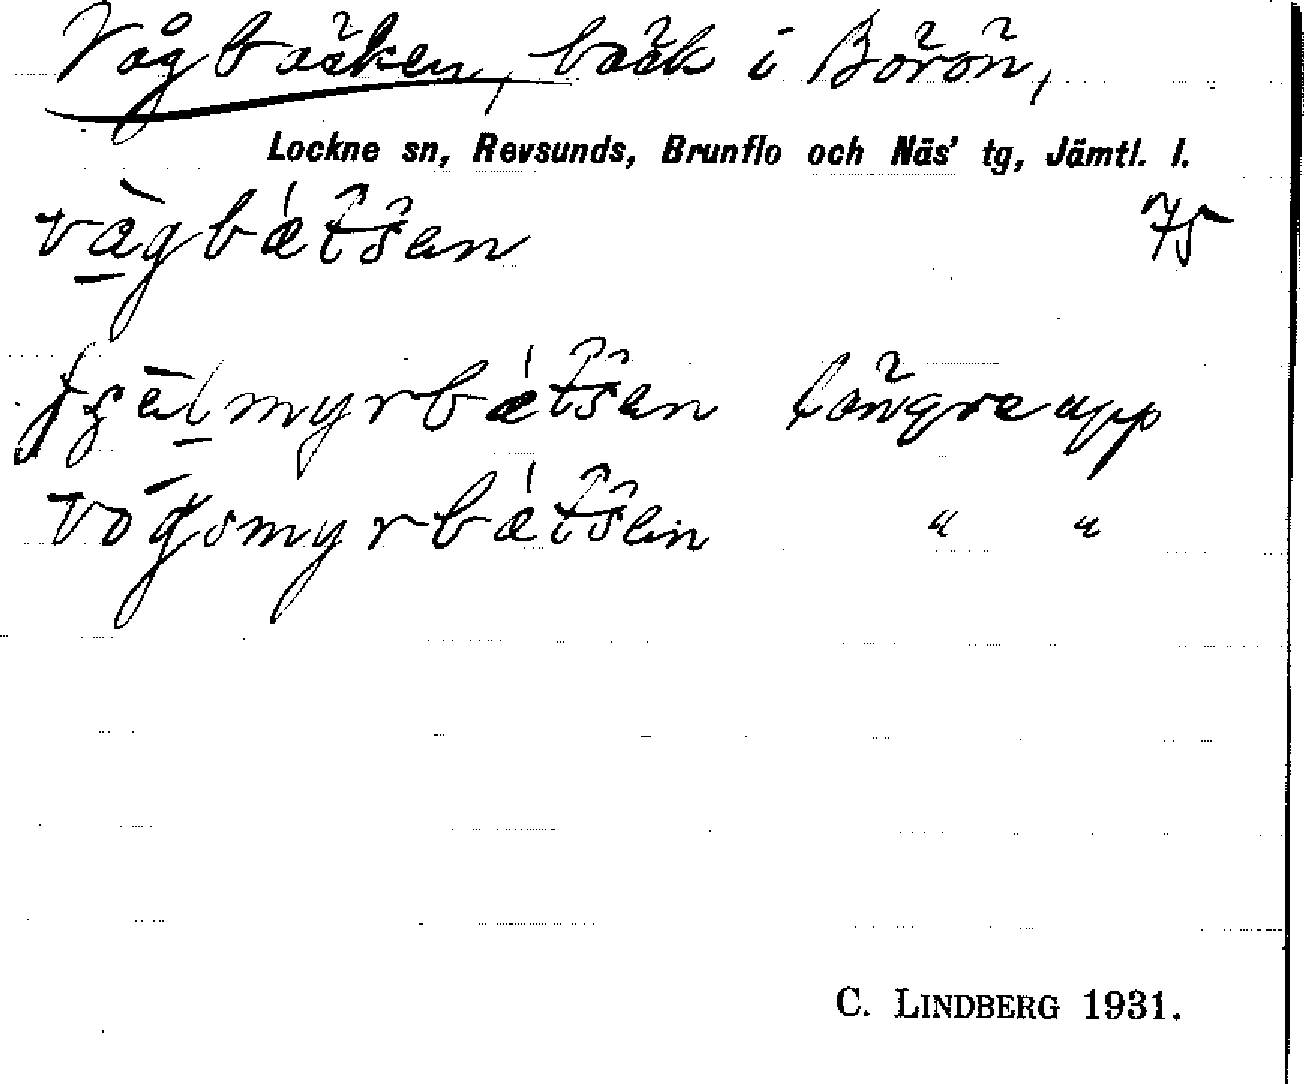 Vågbäcken, bäck i Börön,
Lockne sn, Revsunds, Brunflo och Näs' tg, Jämtl. l.
vàgbǽtšen 75
längre upp
vógsmyrbǽtšen " "
C. LINDBERG 1931.